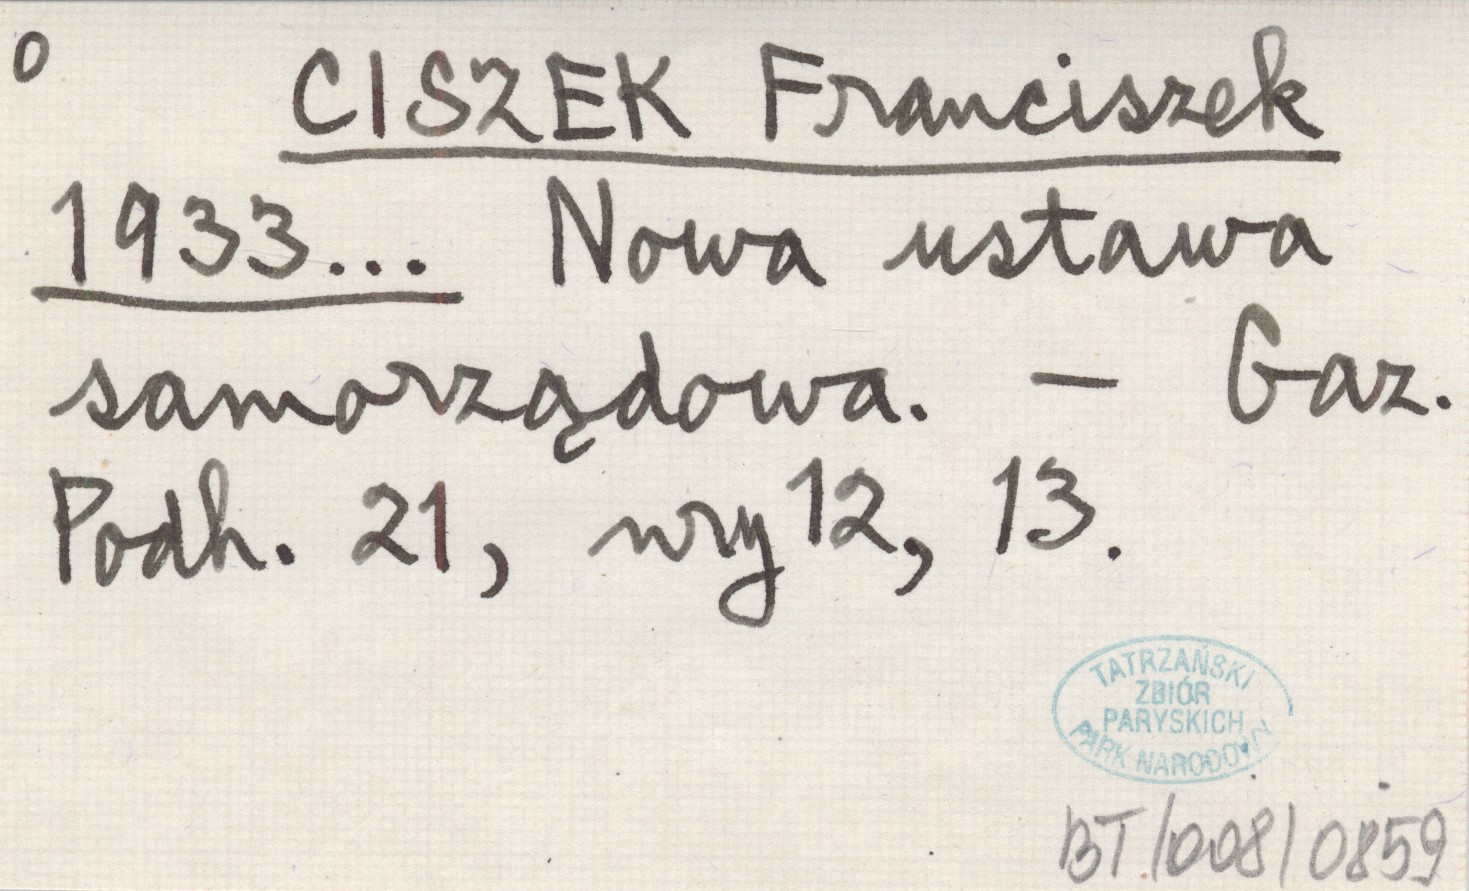 o CISZEK Franciszek
1933... Nowa ustawa
samorządowa. - Gaz.
Podh. 21, nry 12, 13.
TATRZAŃSKI
ZBIÓR
PARYSKICH
PARK NARODOWY
BT/008/0859